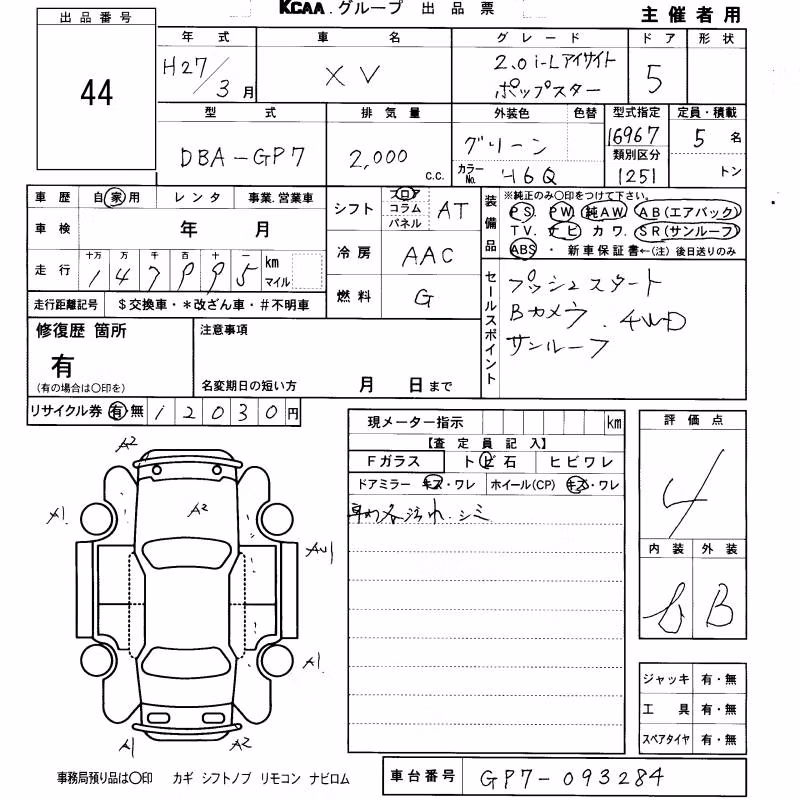 KCAA.グループ 出品票
主催者用
出品番号
44
年式 車名 グレード ドア 形状
H27/3月 XV 2.0i-Lアイサイト 5
ポップスター
型式 排気量 外装色 色替 型式指定 定員・積載
DBA-GP7 2,000c.c. グリーン 16967 5名
類別区分
カラーNo. H6Q 1251 トン
車歴 自家用 レンタ 事業.営業車
シフト フロア コラム パネル AT
装備品 ※純正のみ○印をつけて下さい。
PS. PW 純AW. AB(エアバック)
TV. ナビ カワ. SR(サンルーフ)
ABS ・ 新車保証書←(注)後日送りのみ
車検 年 月
冷房 AAC
走行 十万 万 千 百 十 一 km マイル
147995
燃料 G
セールスポイント
プッシュスタート
Bカメラ. 4WD
サンルーフ
走行距離記号 $交換車・*改ざん車・#不明車
修復歴 箇所 注意事項
有
(有の場合は○印を) 名変期日の短い方 月 日まで
リサイクル券 有 無 12030円
現メーター指示 km
【査定員記入】
Fガラス トビ石 ヒビワレ
ドアミラー キズ・ワレ ホイール(CP) キズ・ワレ
汚れ.シミ
評価点
4
内装 外装
B
A2
A2
A1
A1
A1
A2
ジャッキ 有・無
工具 有・無
スペアタイヤ 有・無
事務局預り品は○印 カギ シフトノブ リモコン ナビロム
車台番号 GP7-093284